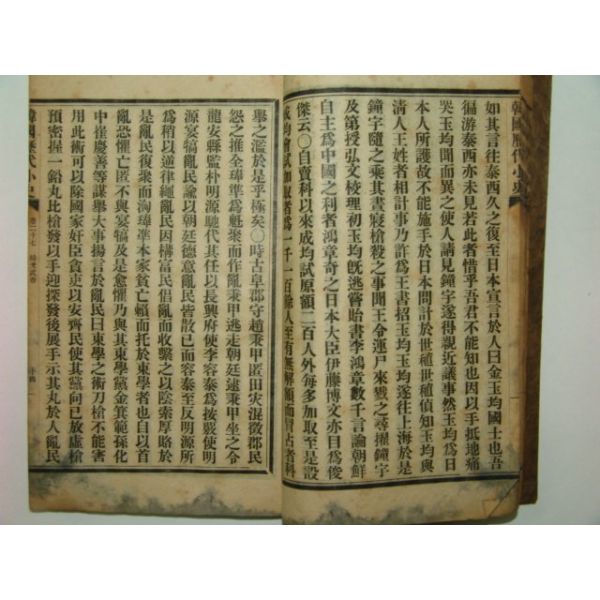 韓國歷代小史
如其言往泰西久之復至日本宣言於人曰金玉均國士也吾
徧游泰西亦未見若此者惜乎吾君不能知也因以手抵地痛
哭玉均聞而異之使人請見鐘宇遂得親近議事然玉均爲日
本人所護故不能施手於日本問計於世稙世稙偵知玉均與
淸人王姓者相計事乃許爲王書招玉均玉均遂往上海於是
鐘宇隨之乘其晝寢槍殺之事聞王令運尸來戮之尋擢鐘宇
及第授弘文校理初玉均旣逃嘗貽書李鴻章數千言論朝鮮
自主爲中國之利者鴻章奇之日本大臣伊藤博文亦目爲俊
傑云〇自賣科以來成均試原額二百人外每多加取至是設
成均會試加取者爲一千一百餘人至有無解額而冒占者科
擧之濫於是乎極矣〇時古阜郡守趙秉甲匿田灾混徵郡民
怨之推全琫準爲魁聚而作亂秉甲逃走朝廷逮秉甲坐之令
龍安縣監朴明源馳代其任以長興府使李容泰爲按覈使明
源宴犒亂民諭以朝廷德意亂民皆散已而容泰至反明源所
爲稍以逆律繩亂民因構富民倡亂而收繫之以陰索厚賂於
是亂民復聚而洶琫準本家貧亡賴而托於東學者也自以首
亂恐懼亡匿不與宴犒及是愈懼乃與其東學黨金箕範孫化
中崔慶善等謀擧大事揚言於亂民曰東學之術刀槍不能害
用此術可以除國家奸臣貪吏以安齊民使其黨向已放虛槍
預密握一鉛丸比槍發以手迎探發後展手示其丸於人亂民
韓國歷代小史
卷二十七